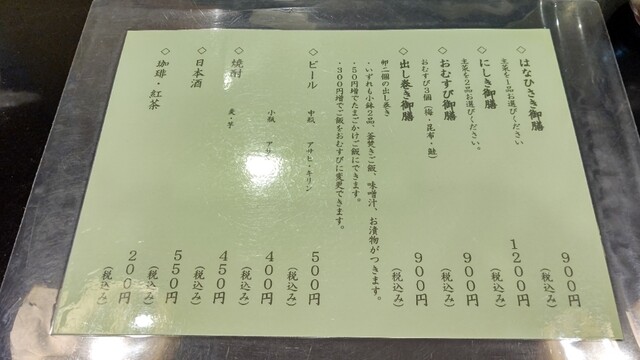 ◇はなひさき御膳 900円
主菜を1品お選びください (税込み)
◇にしき御膳 1200円
主菜を2品お選びください。 (税込み)
◇おむすび御膳 900円
おむすび3個(梅・昆布・鮭) (税込み)
◇出し巻き御膳 900円
卵二個の出し巻き (税込み)
・いずれも小鉢2品、釜焚きご飯、味噌汁、お漬物がつきます。
・50円増でたまごかけご飯にできます。
・300円増でご飯をおむすびに変更できます。
◇ビール
中瓶 アサヒ・キリン 500円
(税込み)
小瓶 アサ 400円
(税込み)
◇焼酎
麦・芋 450円
(税込み)
◇日本酒 550円
(税込み)
◇珈琲・紅茶 200円
(税込み)